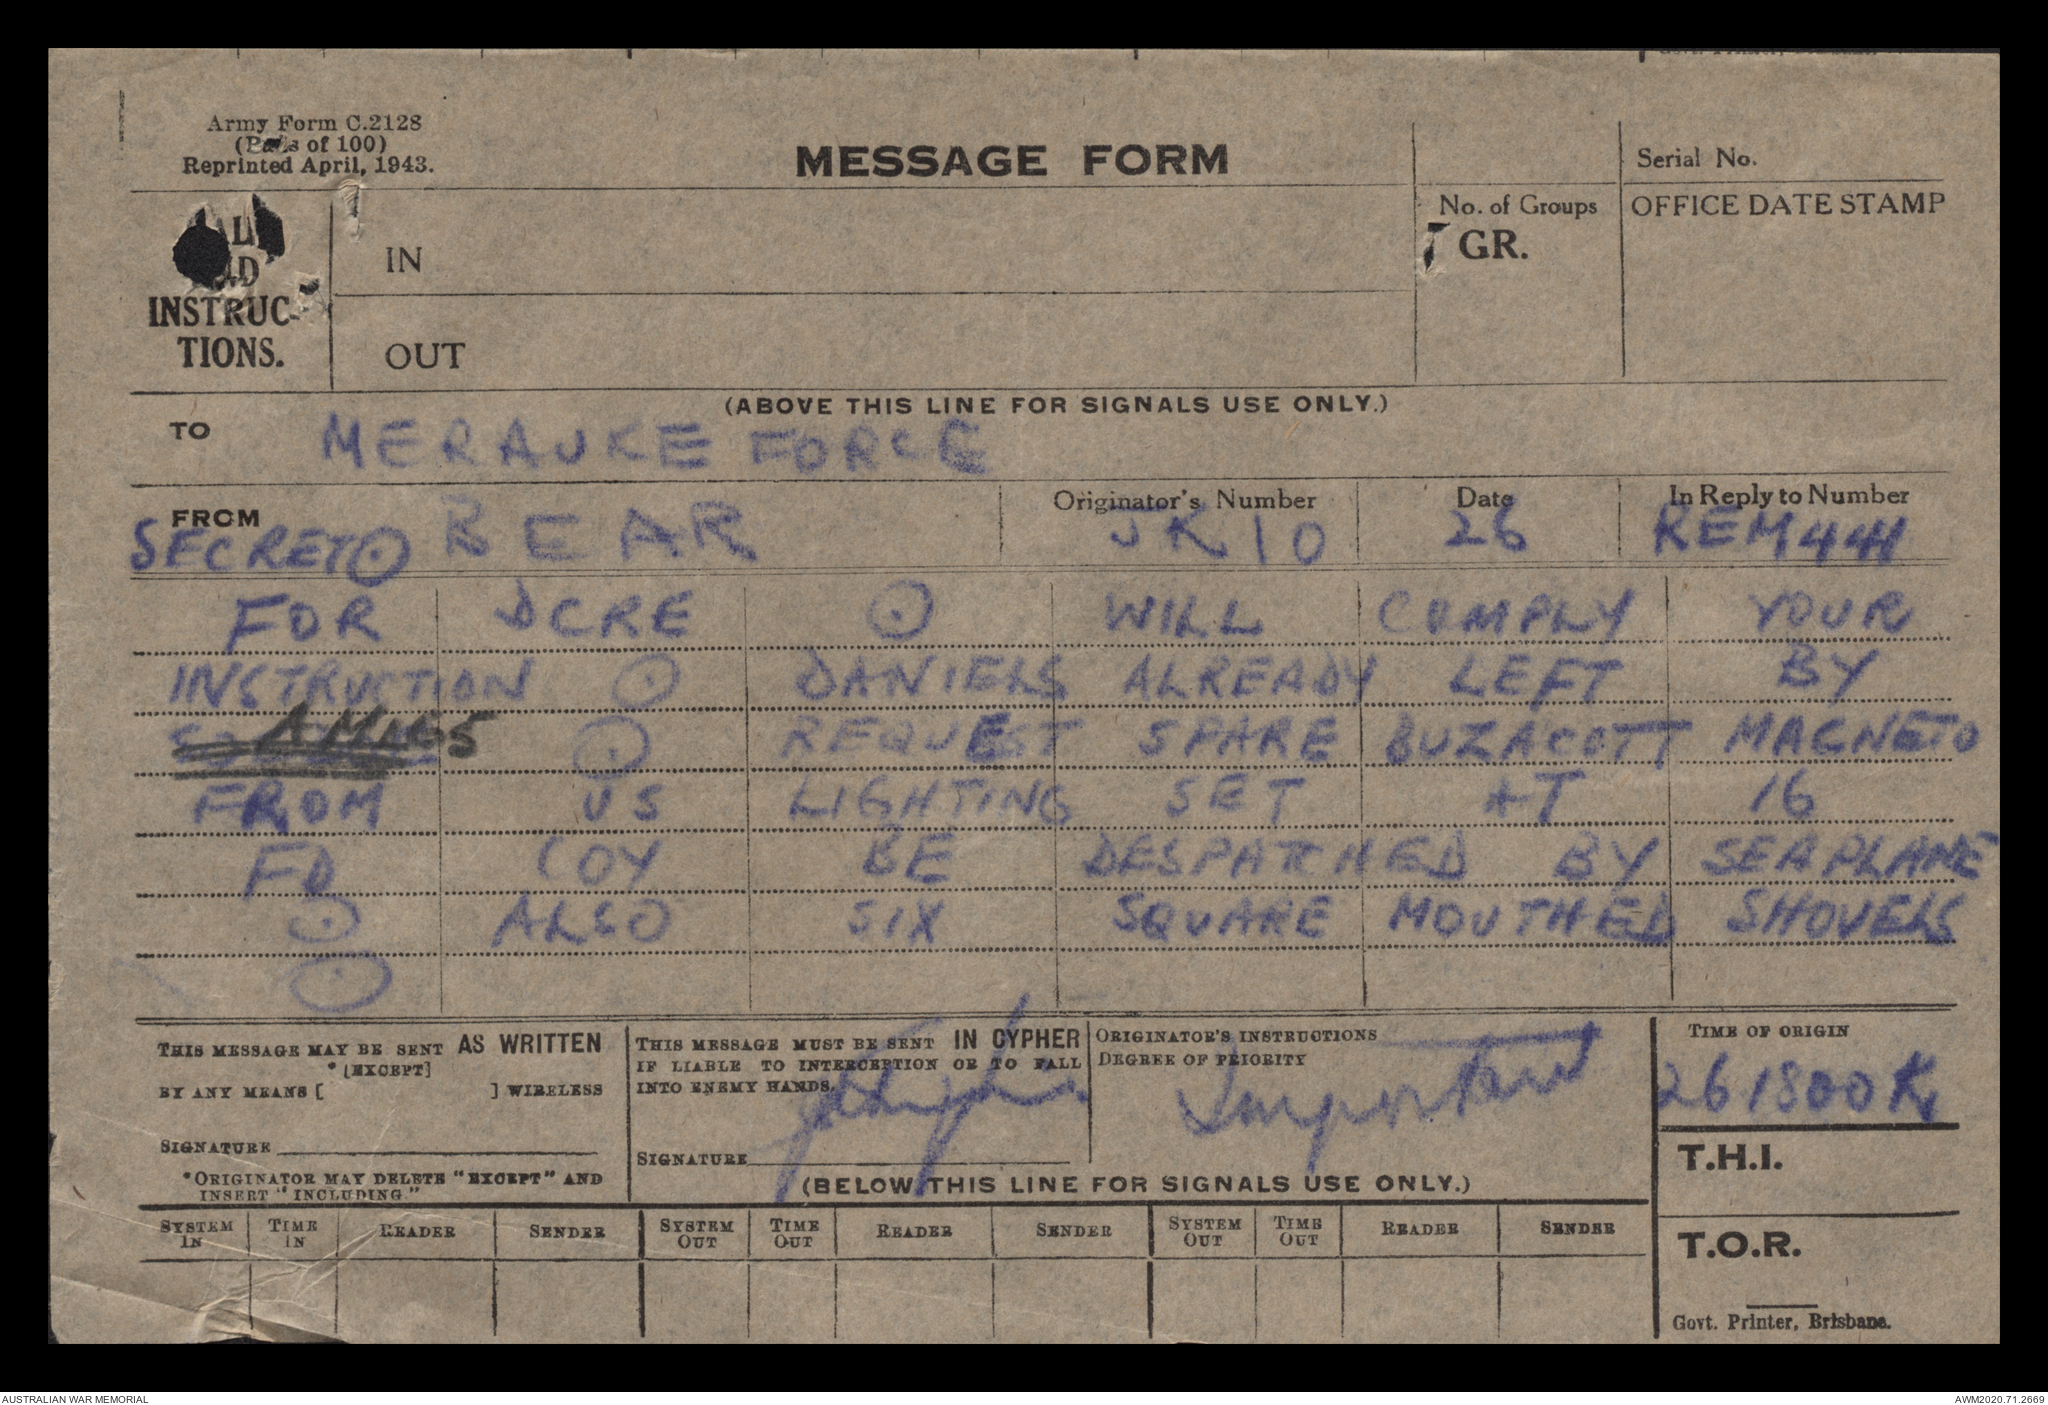 Army Form C.2128
(Pads of 100)
Reprinted April, 1943.
MESSAGE FORM
Serial No.
No. of Groups
OFFICE DATE STAMP
GR.
INSTRUC-
TIONS.
IN
OUT
(ABOVE THIS LINE FOR SIGNALS USE ONLY.)
TO MERAUKE FORCE
FROM BEAR
Originator's Number JK10
Date 26
In Reply to Number REM444
SECRET ⊙
FOR DCRE ⊙ WILL COMPLY YOUR
INSTRUCTION ⊙ DANIELS ALREADY LEFT BY
⊙ REQUEST SPARE BUZACOTT MAGNETO
FROM US LIGHTING SET AT 16
FD COY BE DESPATCHED BY SEAPLANE
⊙ ALSO SIX SQUARE MOUTHED SHOVELS
⊙
THIS MESSAGE MAY BE SENT AS WRITTEN
* [EXCEPT]
BY ANY MEANS [ ] WIRELESS
SIGNATURE
*ORIGINATOR MAY DELETE "EXCEPT" AND
INSERT "INCLUDING"
THIS MESSAGE MUST BE SENT IN CYPHER
IF LIABLE TO INTERCEPTION OR TO FALL
INTO ENEMY HANDS.
SIGNATURE
ORIGINATOR'S INSTRUCTIONS
DEGREE OF PRIORITY
Important
TIME OF ORIGIN
261800K
T.H.I.
T.O.R.
(BELOW THIS LINE FOR SIGNALS USE ONLY.)
SYSTEM IN TIME IN READER SENDER SYSTEM OUT TIME OUT READER SENDER SYSTEM OUT TIME OUT READER SENDER
Govt. Printer, Brisbane.
AUSTRALIAN WAR MEMORIAL
AWM2020.71.2669